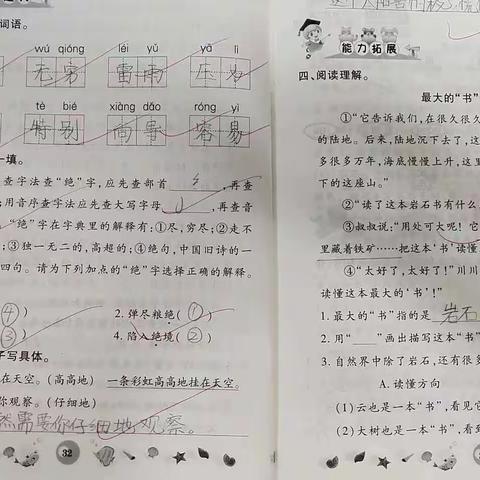 词语。
wú qióng
léi yǔ
yā lì
无穷
雷雨
压力
tè bié
xiàng dǎo
róng yì
特别
向导
容易
一填。
查字法查“绝”字，应先查部首 纟 ，再查
；用音序查字法应先查大写字母 J ，再查音
“绝”字在字典里的解释有：①尽，穷尽；②走不
；③独一无二的，高超的；④绝句，中国旧诗的一
四句。请为下列加点的“绝”字选择正确的解释。
④ ）
2. 弹尽粮绝（ ① ）
③ ）
4. 陷入绝境（ ② ）
子写具体。
在天空。（高高地） 一条彩虹高高地挂在天空。
你观察。（仔细地）
然需要你仔细地观察。
32
能力拓展
四、阅读理解。
最大的“书”
①“它告诉我们，在很久很久
的陆地。后来，陆地沉下去了，这
多很多万年，海底慢慢上升，这里
下的这座山。”
②“读了这本岩石书有什么
③叔叔说：“用处可大呢！它
里藏着铁矿……把这本‘书’读懂
④“太好了，太好了！”川川
读懂这本最大的‘书’！”
1. 最大的“书”指的是 岩石
2. 用“ ”画出描写这本“书”
3. 自然界中除了岩石，还有很多
A. 读懂方向
（1）云也是一本“书”，看见它
（2）大树也是一本“书”，看到